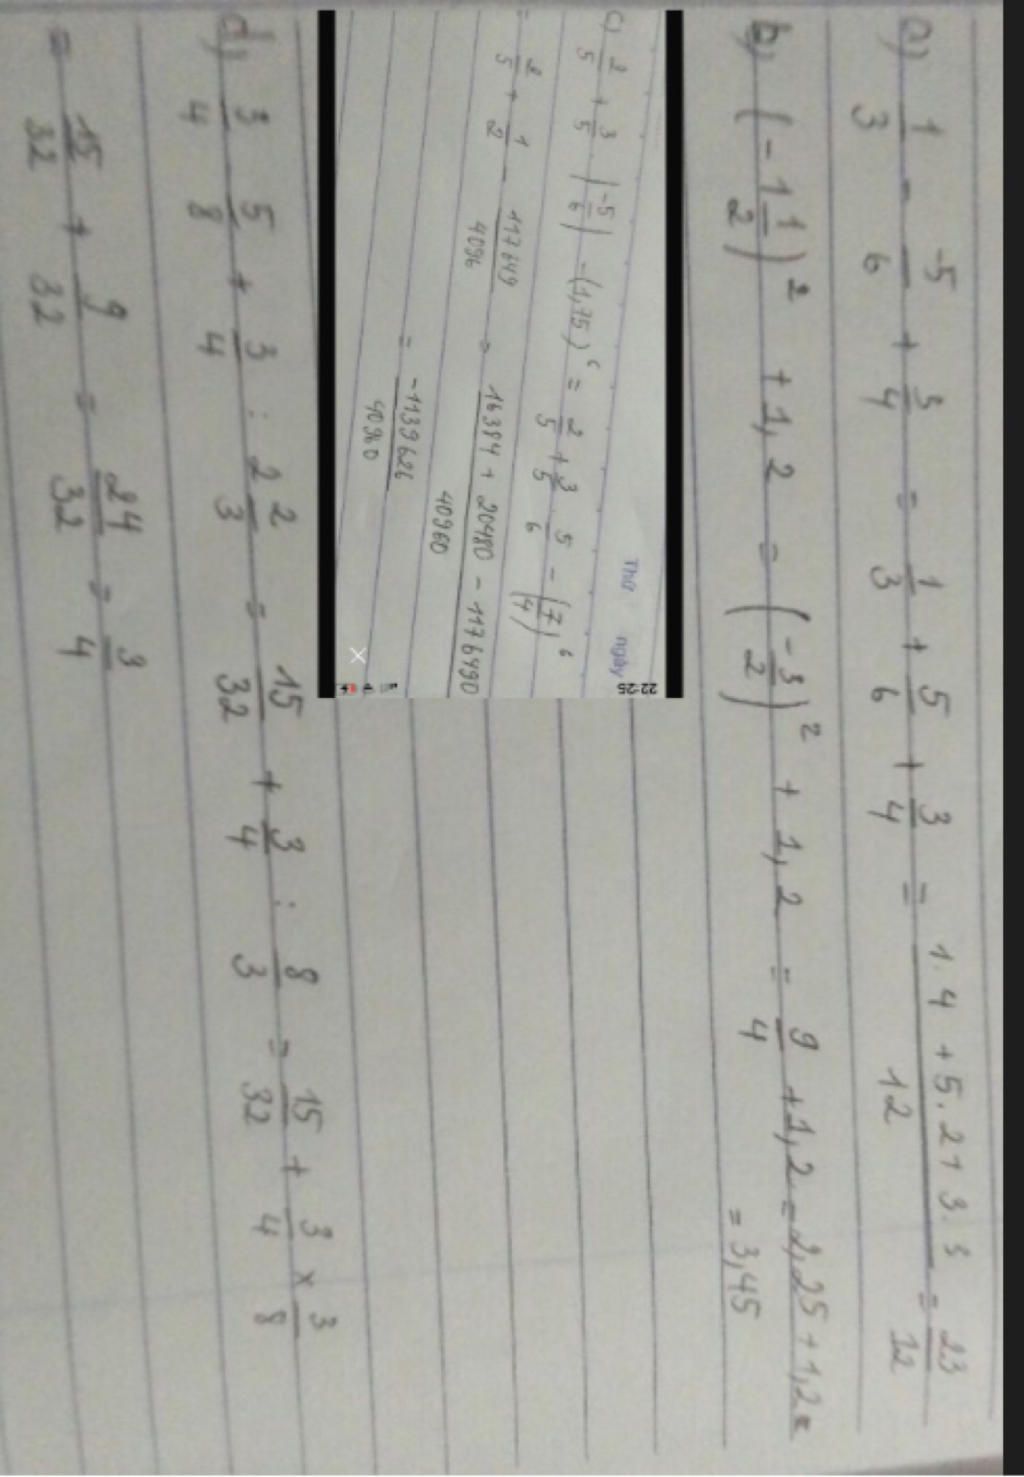 a) 1/3 - -5/6 + 3/4 = 1/3 + 5/6 + 3/4 = (1.4 + 5.2 + 3.3)/12 = 23/12
b) (-1 1/2)² + 1,2 = (-3/2)² + 1,2 = 9/4 + 1,2 = 2,25 + 1,2 =
= 3,45
22:25
Thứ ngày
c) 2/5 + 3/5 |-5/6| - (1,75)⁶ = 2/5 + 3/5 5/6 - (7/4)⁶
= 2/5 + 1/2 - 117649/4096 = (16384 + 20480 - 1176490)/40960
= -1139626/40960
d) 3/4 5/8 + 3/4 : 2 2/3 = 15/32 + 3/4 : 8/3 = 15/32 + 3/4 × 3/8
= 15/32 + 9/32 = 24/32 = 3/4